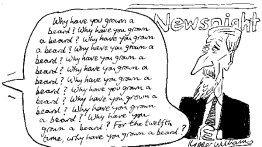 Why have you grown a
beard? Why have you grown
a beard? Why have you grown
a beard? Why have you grown a
beard? Why have you grown
a beard? Why have you grown
a beard? Why have you grown
a beard? Why have you grown
a beard? Why have you grown a
beard? Why have you grown
a beard? Why have you
grown a beard? For the twelfth
time, why have you grown a beard?
Newsnight